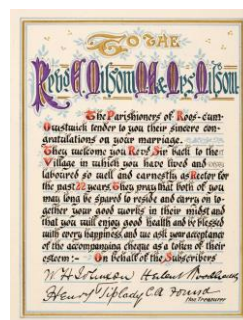 TO THE
Revd E. Milsom M.A. & Mrs Milsom
The Parishioners of Roos-cum-
Owstwick tender to you their sincere con-
gratulations on your marriage.
They welcome you Revd Sir back to the
Village in which you have lived and
laboured so well and earnestly as Rector for
the past 22 years. They pray that both of you
may long be spared to reside and carry on to-
gether your good works in their midst and
that you will enjoy good health and be blessed
with every happiness and we ask your acceptance
of the accompanying cheque as a token of their
esteem :- On behalf of the Subscribers
W H Johnson Herbert Woodhouse
Henry Tiplady C A
Hon Treasurer